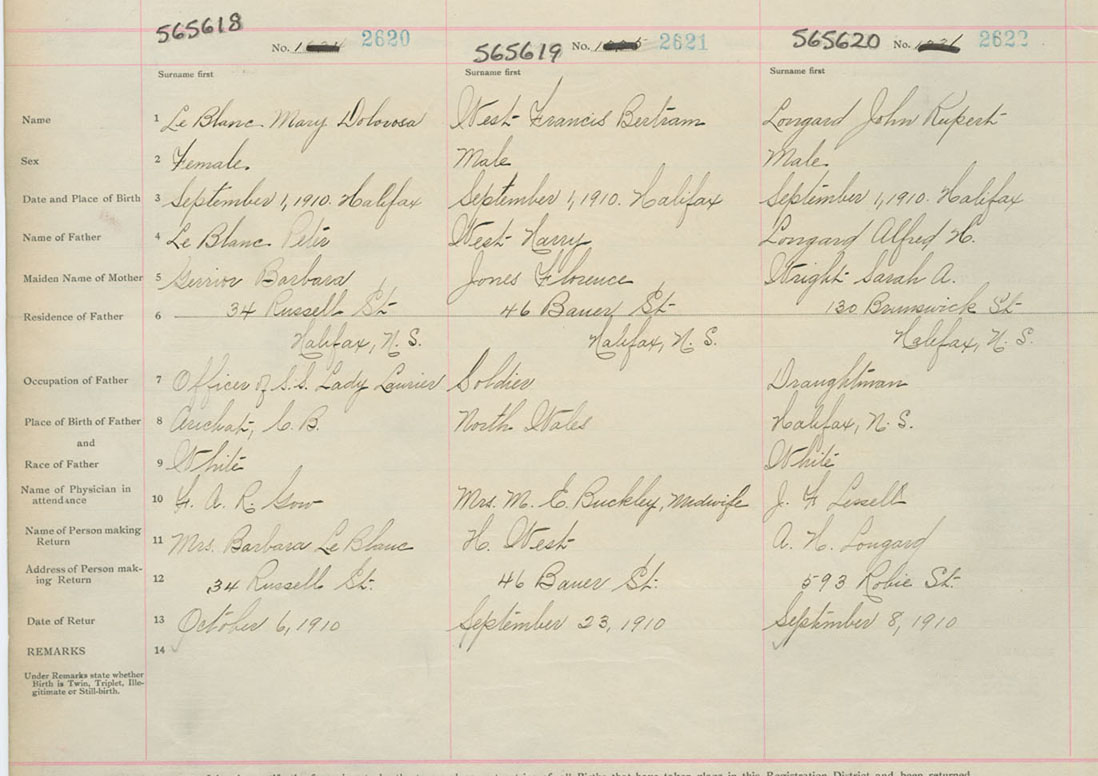 565618
565619
565620
No. 2620
No. 2621
No. 2622
Surname first
Surname first
Surname first
Name 1 Le Blanc Mary Dolorosa West Francis Bertram Longard John Rupert
Sex 2 Female. Male Male.
Date and Place of Birth 3 September 1, 1910. Halifax September 1, 1910. Halifax September 1, 1910. Halifax
Name of Father 4 Le Blanc Peter West Harry Longard Alfred H.
Maiden Name of Mother 5 Gerrior Barbara Jones Florence Wright Sarah A.
34 Russell St 46 Bauer St 130 Brunswick St
Residence of Father 6
Halifax, N. S. Halifax, N. S. Halifax, N. S.
Occupation of Father 7 Officer of S.S. Lady Laurier Soldier Draughtman
Place of Birth of Father 8 Arichat, C. B. North Wales Halifax, N. S.
and
Race of Father 9 White White
Name of Physician in
attendance 10 F. A. R. Gow Mrs. M. E. Buckley, Midwife J. F Lessell
Name of Person making
Return 11 Mrs. Barbara Le Blanc H. West A. H. Longard
Address of Person mak-
ing Return 12 34 Russell St. 46 Bauer St. 593 Robie St.
Date of Retur 13 October 6, 1910 September 23, 1910 September 8, 1910
REMARKS 14
Under Remarks state whether
Birth is Twin, Triplet, Ille-
gitimate or Still-birth.